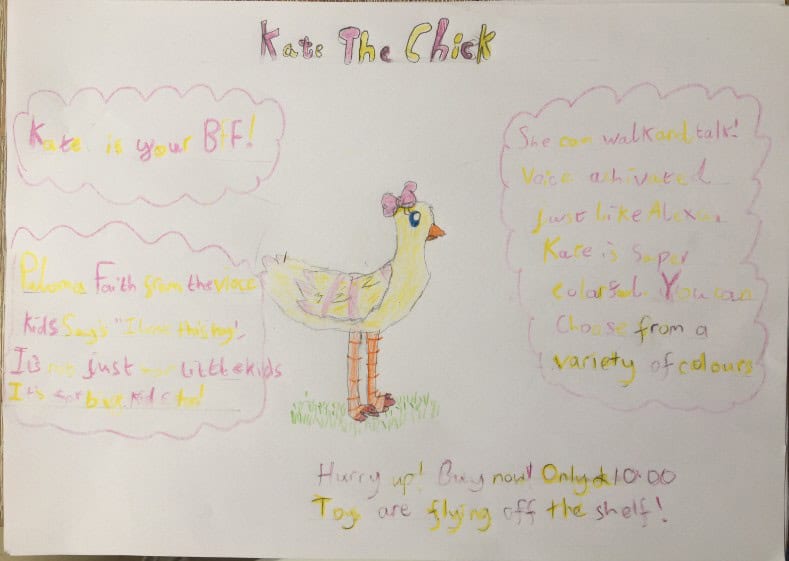 Kate The Chick
Kate is your BFF!
Paloma Faith from the voice
kids Says "I love this toy".
It's not just for little kids
It's for big kids too!
She can walk and talk!
Voice achivated
just like Alexa
Kate is super
colorful. You can
Choose from a
variety of colours
Hurry up! Buy now! Only £10.00
Toys are flying off the shelf!